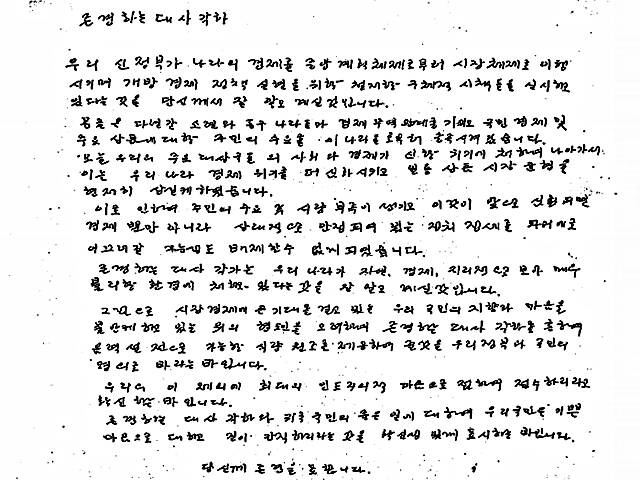 존경하는 대사 각하
우리 신정부가 나라의 경제를 중앙 계획체제로부터 시장체제로 이행
시키며 개방 경제 정책 실현을 위한 전제한 구체적 시책들을 실시하고
있다는 것을 당신께서 잘 알고 계실것입니다.
몽골은 다년간 소련과 동구 나라들과 경제 무역 관계를 가지고 국민 경제 및
주요 상품에 대한 주민의 수요를 이 나라들로부터 충족시켜 왔습니다.
오늘 우리의 주요 대상국들의 사회와 경제가 신한 위기에 처하여 나아가서
이는 우리 나라 경제 위기를 더 심화시키고 일용 상품 시장 균형을
현저히 상실케하였습니다.
이로 인하여 주민의 수요 및 식량 부족이 생기고 이것이 앞으로 심화되면
경제 뿐만 아니라 상대적으로 안정되여 있는 정치 정세를 파악에로
이끄러갈 가능성도 배제할수 없게 되었습니다.
존경하는 대사 각하는 우리 나라가 자연, 경제, 지리적으로 모두 매우
불리한 환경에 처해 있다는것을 잘 알고 계실것입니다.
그러므로 시장경제에 큰 기대를 걸고 있는 우리 국민의 지향과 마음을
불안케하고 있는 위의 현조건을 고려하여 존경하는 대사 각하를 통하여
무엇보다 우선적으로 가능한 식량 원조를 제공하여 줄것을 우리정부와 국민의
명의로 바라는바입니다.
우리의 이 제의에 최대의 인도주의적 마음으로 접하여 접수하리라고
확신하는바입니다.
존경하는 대사 각하와 귀국 국민의 좋은 일에 대하여 우리국민은 기쁜
마음으로 대하고 깊이 간직하리라는 것을 남김없이 표시하는바입니다.
당신께 존경을 표합니다.